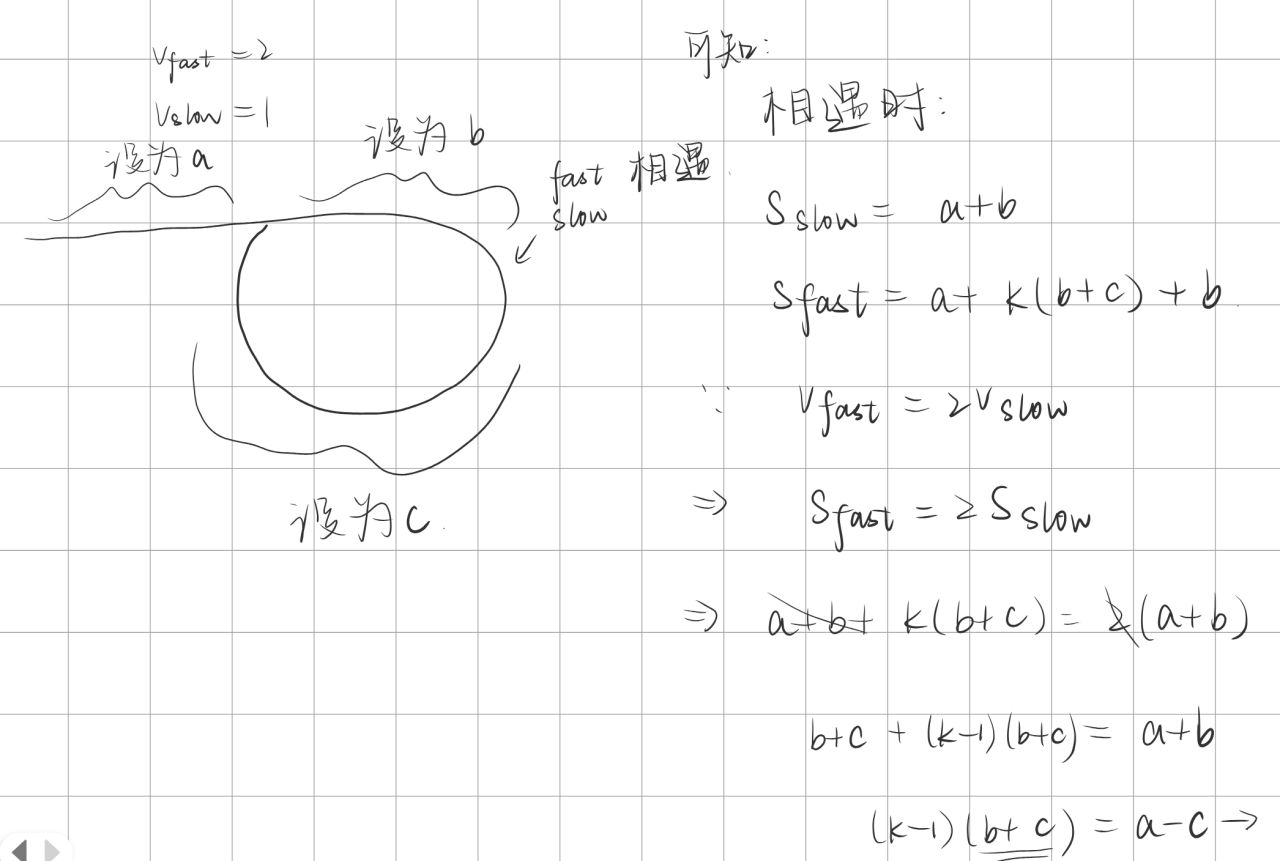 v_fast = 2
v_slow = 1
设为 a
设为 b
fast 相遇.
slow
设为 c.
可知:
相遇时:
S_slow = a+b
S_fast = a+ k(b+c) + b.
∵ v_fast = 2v_slow
⇒ S_fast = 2 S_slow
⇒ a+b+ k(b+c) = 2(a+b)
b+c + (k-1)(b+c) = a+b
(k-1)(b+c) = a-c →